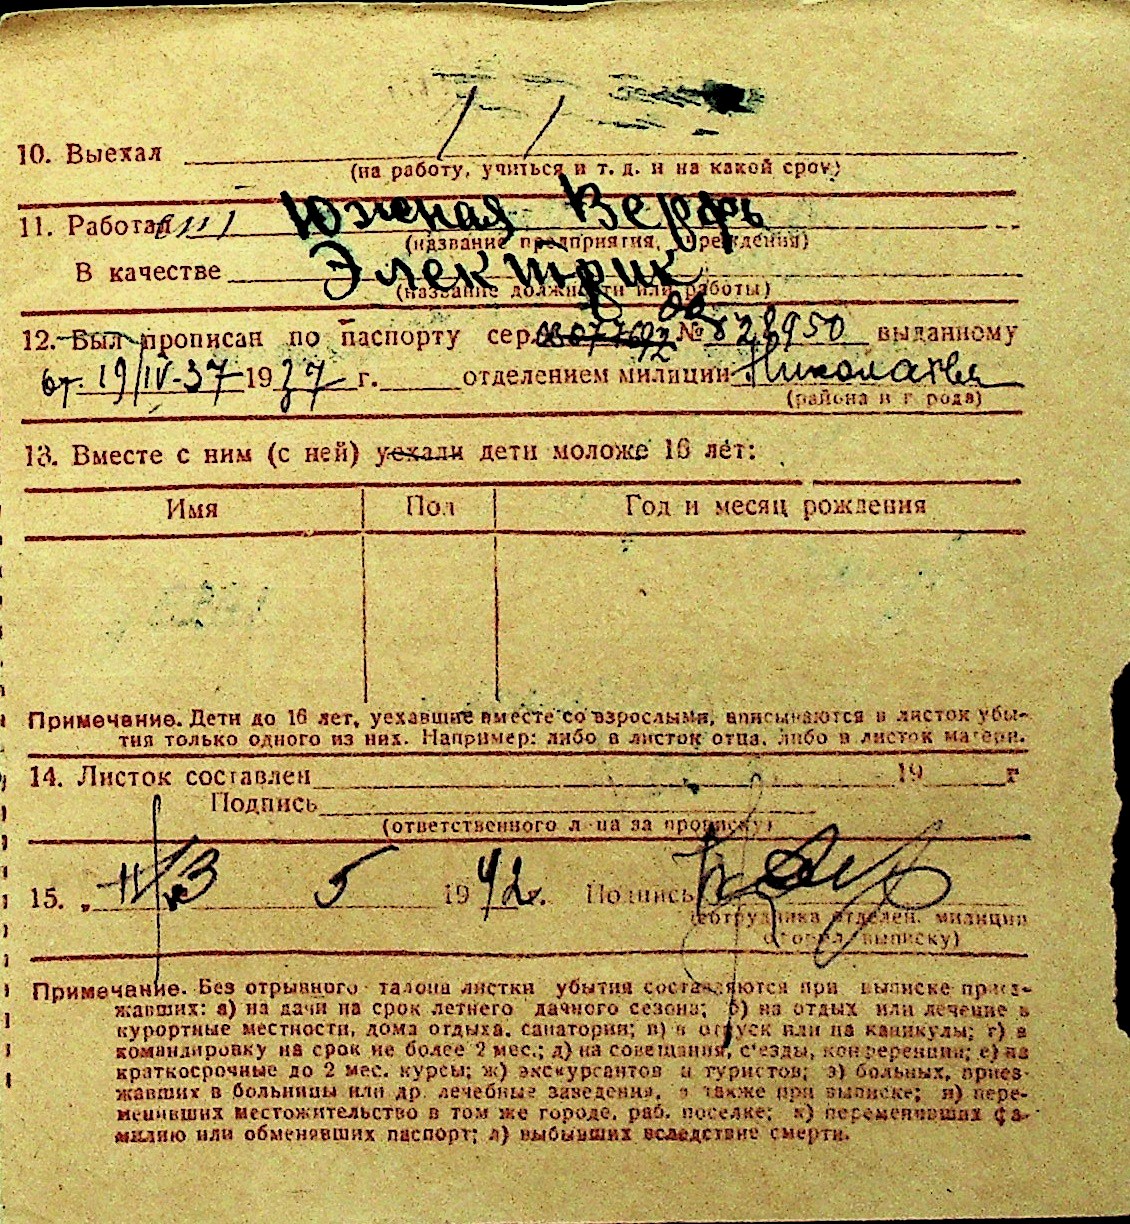 10. Выехал
(на работу, учиться и т. д. и на какой срок)
11. Работал Южная Верфь
(название предприятия, учреждения)
В качестве Электрик
(название должности или работы)
12. Был прописан по паспорту сер. № 828950 выданному
от 19/IV-37 1937 г. отделением милиции Николаева
(района и города)
13. Вместе с ним (с ней) уехали дети моложе 16 лет:
Имя Пол Год и месяц рождения
Примечание. Дети до 16 лет, уехавшие вместе со взрослыми, вписываются в листок убы-
тия только одного из них. Например: либо в листок отца, либо в листок матери.
14. Листок составлен 19 г
Подпись
(ответственного лица за прописку)
15. „ 5 1942. Подпись
(сотрудника отделен. милиции
оформл. выписку)
Примечание. Без отрывного талона листки убытия составляются при выписке приез-
жавших: а) на дачи на срок летнего дачного сезона; б) на отдых или лечение в
курортные местности, дома отдыха, санатории; в) в отпуск или на каникулы; г) в
командировку на срок не более 2 мес.; д) на совещания, с'езды, конференции; е) на
краткосрочные до 2 мес. курсы; ж) экскурсантов и туристов; з) больных, приез-
жавших в больницы или др. лечебные заведения, а также при выписке; и) пере-
менивших местожительство в том же городе, раб. поселке; к) переменивших фа-
милию или обменявших паспорт; л) выбывших вследствие смерти.